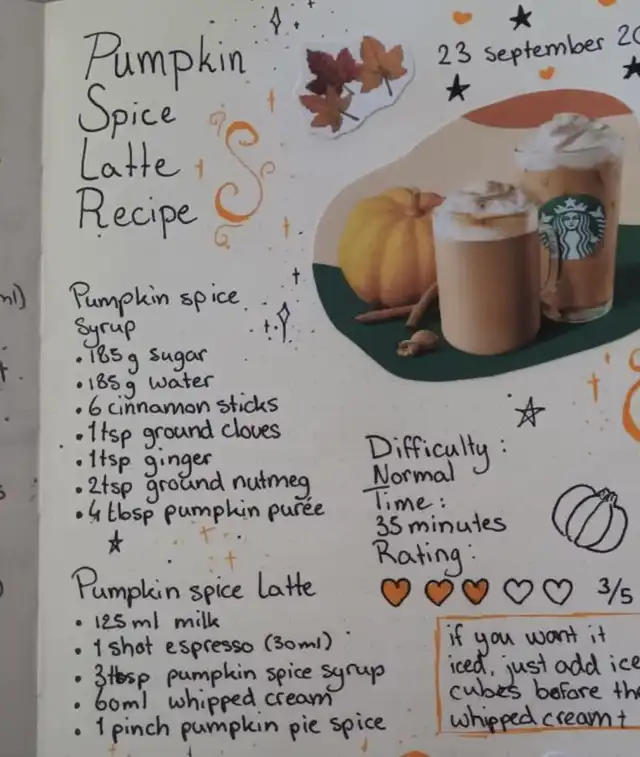 Pumpkin
Spice
Latte
Recipe
23 september 20
Pumpkin spice
syrup
• 185g sugar
• 185g water
• 6 cinnamon sticks
• 1tsp ground cloves
• 1tsp ginger
• 2tsp ground nutmeg
• 4 tbsp pumpkin purée
Difficulty:
Normal
Time:
35 minutes
Rating:
3/5
Pumpkin spice latte
• 125 ml milk
• 1 shot espresso (30ml)
• 3tbsp pumpkin spice syrup
• 60ml whipped cream
• 1 pinch pumpkin pie spice
if you want it
iced, just add ice
cubes before the
whipped cream
ml)